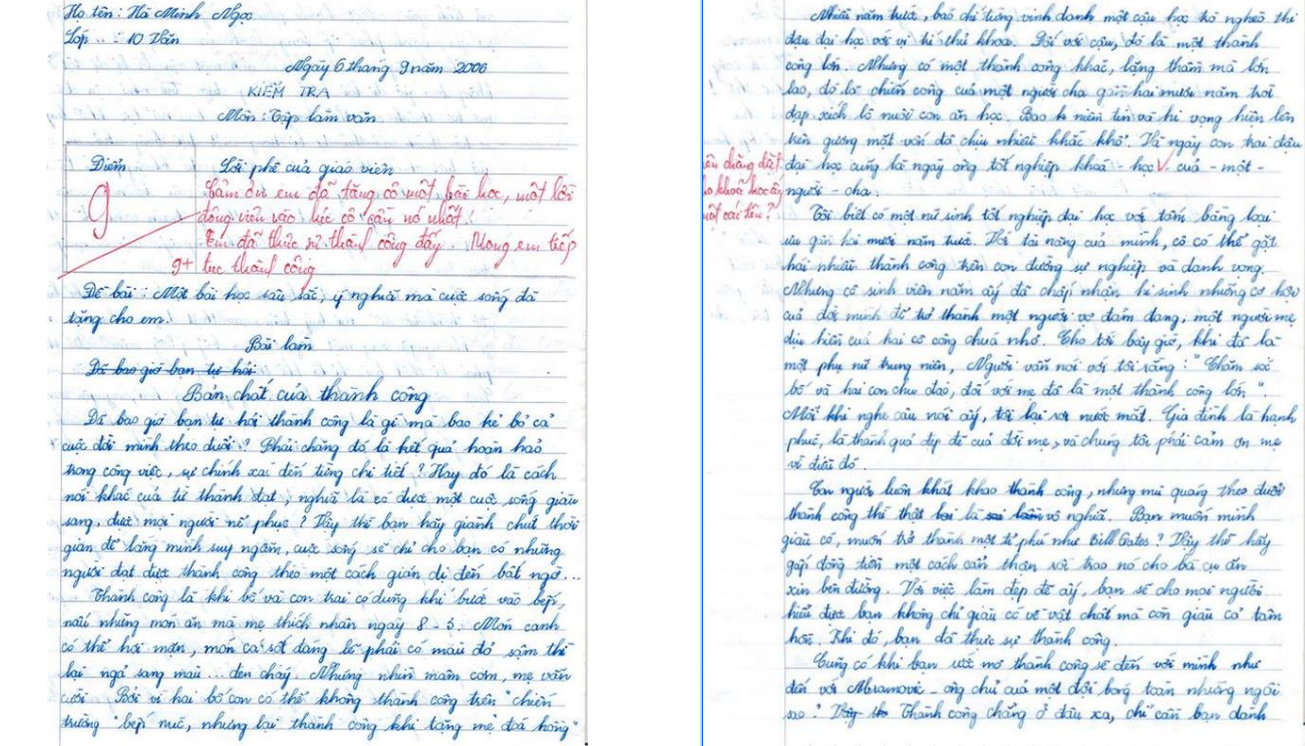 Họ tên : Hà Minh Ngọc
Lớp : 10 Văn
Ngày 6 tháng 9 năm 2006
KIỂM TRA
Môn : Tập làm văn
Điểm
Lời phê của giáo viên
9
Cảm ơn em đã tặng cô một bài học, một lời
động viên vào lúc cô cần nó nhất!
Em đã thực sự thành công đấy. Mong em tiếp
9+ tục thành công
Đề bài : Một bài học sâu sắc, ý nghĩa mà cuộc sống đã
tặng cho em.
Bài làm
Đã bao giờ bạn tự hỏi
Bản chất của thành công
Đã bao giờ bạn tự hỏi thành công là gì mà bao kẻ bỏ cả
cuộc đời mình theo đuổi ? Phải chăng đó là kết quả hoàn hảo
trong công việc, sự chính xác đến từng chi tiết ? Hay đó là cách
nói khác của từ thành đạt, nghĩa là có được một cuộc sống giàu
sang, được mọi người nể phục ? Vậy thì bạn hãy giành chút thời
gian để lặng mình suy ngẫm, cuộc sống sẽ chỉ cho bạn có những
người đạt được thành công theo một cách giản dị đến bất ngờ...
Thành công là khi bố và con trai có dũng khí bước vào bếp,
nấu những món ăn mà mẹ thích nhân ngày 8 - 3. Món canh
có thể hơi mặn, món cá sốt đáng lẽ phải có màu đỏ sậm thì
lại ngả sang màu ... đen cháy. Nhưng nhìn mâm cơm, mẹ vẫn
cười. Bởi vì hai bố con có thể không thành công trên "chiến
trường" bếp núc, nhưng lại thành công khi tặng mẹ "đoá hồng"
Nhiều năm trước, báo chí từng vinh danh một cậu học trò nghèo thi
đậu đại học với vị trí thủ khoa. Đối với cậu, đó là một thành
công lớn. Nhưng có một thành công khác, lặng thầm mà lớn
lao, đó là chiến công của một người cha gần hai mươi năm trời
đạp xích lô nuôi con ăn học. Bao niềm tin và hi vọng hiện lên
trên gương mặt vốn đã chịu nhiều khắc khổ. Và ngày con trai đậu
đại học cũng là ngày ông tốt nghiệp khoá - học - của - một -
người - cha.
đặt
khoá học ấy
một cái tên ?
Tôi biết có một nữ sinh tốt nghiệp đại học với tấm bằng loại
ưu gần hai mươi năm trước. Với tài năng của mình, cô có thể gặt
hái nhiều thành công trên con đường sự nghiệp và danh vọng.
Nhưng cô sinh viên năm ấy đã chấp nhận hi sinh những cơ hội
của đời mình để trở thành một người vợ đảm đang, một người mẹ
dịu hiền của hai cô công chúa nhỏ. Cho tới bây giờ, khi đã là
một phụ nữ trung niên, Người vẫn nói với tôi rằng : "Chăm sóc
bố và hai con chu đáo, đối với mẹ đã là một thành công lớn".
Mỗi khi nghe câu nói ấy, tôi lại rơi nước mắt. Gia đình là hạnh
phúc, là thành quả đẹp đẽ của đời mẹ, và chúng tôi phải cảm ơn mẹ
vì điều đó.
Con người luôn khát khao thành công, nhưng mù quáng theo đuổi
thành công thì thật là vô nghĩa. Bạn muốn mình
giàu có, muốn trở thành một tỉ phú như Bill Gates ? Vậy thì hãy
gấp đồng tiền một cách cẩn thận rồi trao nó cho bà cụ ăn
xin bên đường. Với việc làm đẹp đẽ ấy, bạn sẽ cho mọi người
hiểu được bạn không chỉ giàu có về vật chất mà còn giàu có tâm
hồn. Khi đó bạn đã thực sự thành công.
Cũng có khi bạn ước mơ thành công sẽ đến với mình như
đến với Abramovic - ông chủ của một đội bóng toàn những ngôi
sao ? Vậy thì Thành công chẳng ở đâu xa, chỉ cần bạn dành